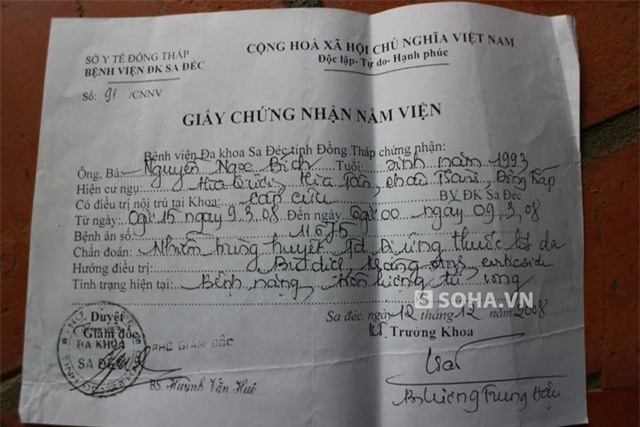 SỞ Y TẾ ĐỒNG THÁP
BỆNH VIỆN ĐK SA ĐÉC
Số: 91 /CNNV
CỘNG HOÀ XÃ HỘI CHỦ NGHĨA VIỆT NAM
Độc lập- Tự do- Hạnh phúc
GIẤY CHỨNG NHẬN NẰM VIỆN
Bệnh viện Đa khoa Sa Đéc tỉnh Đồng Tháp chứng nhận:
Ông, Bà: Nguyễn Ngọc Bích Tuổi: sinh năm 1993
Hiện cư ngụ: Hòa Tân, Châu Thành, Đồng Tháp
Có điều trị nội trú tại Khoa: Cấp cứu BV ĐK Sa Đéc
Từ ngày: 0giờ 15 ngày 9.3.08 Đến ngày 0giờ 00 ngày 09.3.08
Bệnh án số: 11675
Chẩn đoán: Nhiễm trùng huyết Td Dị ứng thuốc
Hướng điều trị: kháng sinh, corticoid
Tình trạng hiện tại: Bệnh nặng, tiên lượng tử vong
SOHA.VN
Sa đéc, ngày 12 tháng 12 năm 2008
Duyệt
Giám đốc
KT. Trưởng Khoa
ĐA KHOA
SA ĐÉC
PHÓ GIÁM ĐỐC
BS. Huỳnh Văn Huê
Bs Lương Trung Hậu